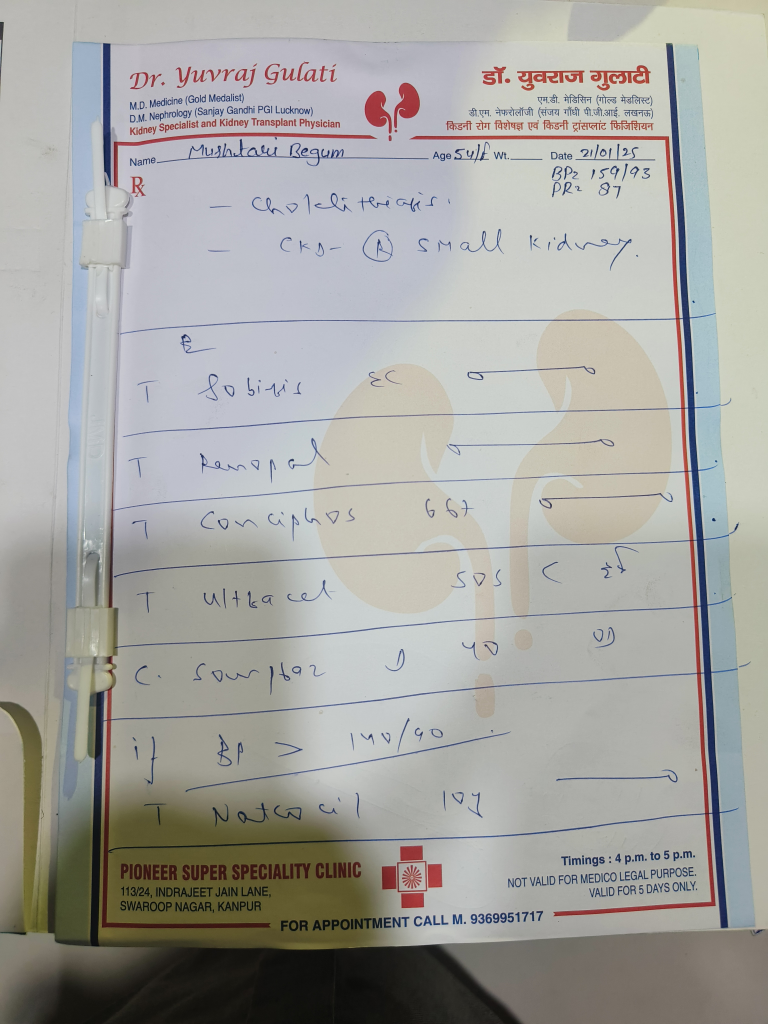 Dr. Yuvraj Gulati
M.D. Medicine (Gold Medalist)
D.M. Nephrology (Sanjay Gandhi PGI Lucknow)
Kidney Specialist and Kidney Transplant Physician
डॉ. युवराज गुलाटी
एम.डी. मेडिसिन (गोल्ड मेडलिस्ट)
डी.एम. नेफरोलॉजी (संजय गाँधी पी.जी.आई. लखनऊ)
किडनी रोग विशेषज्ञ एवं किडनी ट्रांसप्लांट फिजिशियन
Name Mushtari Begum Age 54/f Wt. Date 21/01/25
BP= 159/93
PR= 87
Rx
- CKD- (R) small kidney.
T
T Renopal
T Conciphos 667
T Ultracet SOS
C. D 40 OD
if BP > 140/90
T 10
PIONEER SUPER SPECIALITY CLINIC
113/24, INDRAJEET JAIN LANE,
SWAROOP NAGAR, KANPUR
Timings : 4 p.m. to 5 p.m.
NOT VALID FOR MEDICO LEGAL PURPOSE.
VALID FOR 5 DAYS ONLY.
FOR APPOINTMENT CALL M. 9369951717